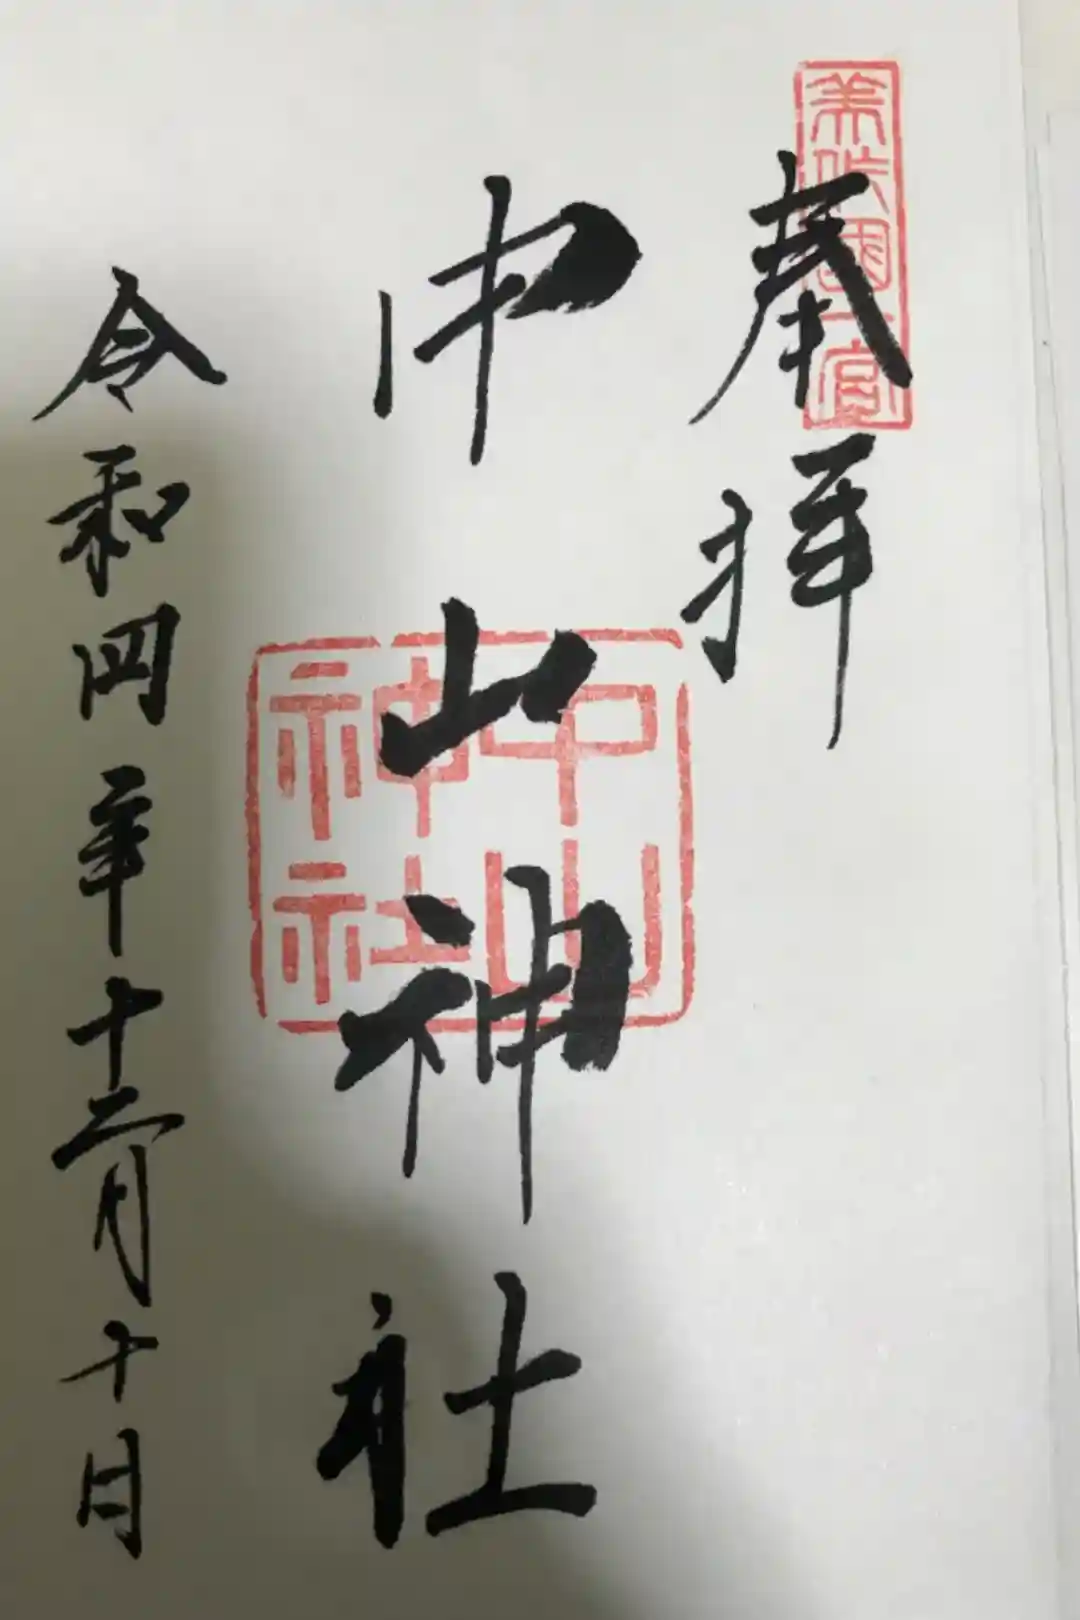 美作國一宮
奉拝
中山神社
中山
神社
令和四年十二月十日